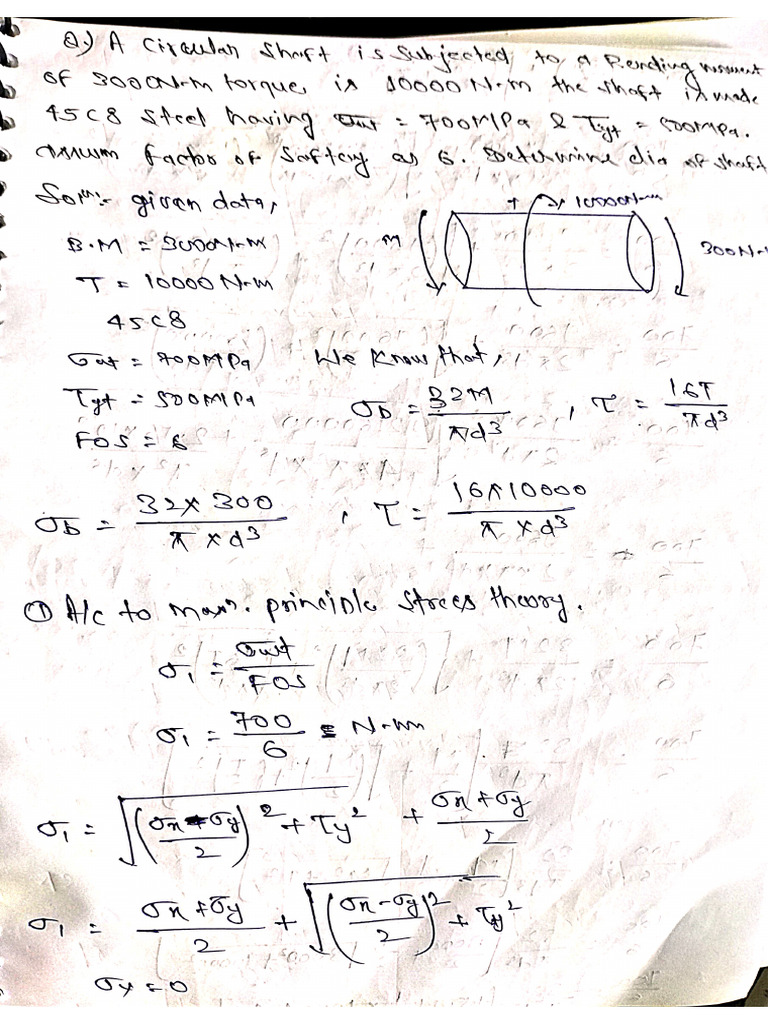 Q.) A circular shaft is subjected to a Bending moment
of 3000N-m torque is 10000 N-m the shaft is made
45C8 steel having σut = 700MPa & τyt = 500MPa.
Assum factor of saftey as 6. Determine dia of shaft
Solⁿ:- given data,
T 10000N-m
B.M = 3000N-m
M
300N-
T = 10000 N-m
45C8
σut = 700MPa We know that,
τyt = 500MPa σb = 32M/πd³ , τ = 16T/πd³
FOS = 6
σb = 32×300/π×d³ , τ = 16×10000/π×d³
① A/c to maxⁿ. principle stress theory.
σ1 = σut/FOS
σ1 = 700/6 = N-mm
σ1 = √((σx-σy)/2)² + τy² + (σx+σy)/2
σ1 = (σx+σy)/2 + √((σx-σy)/2)² + τy²
σy = 0